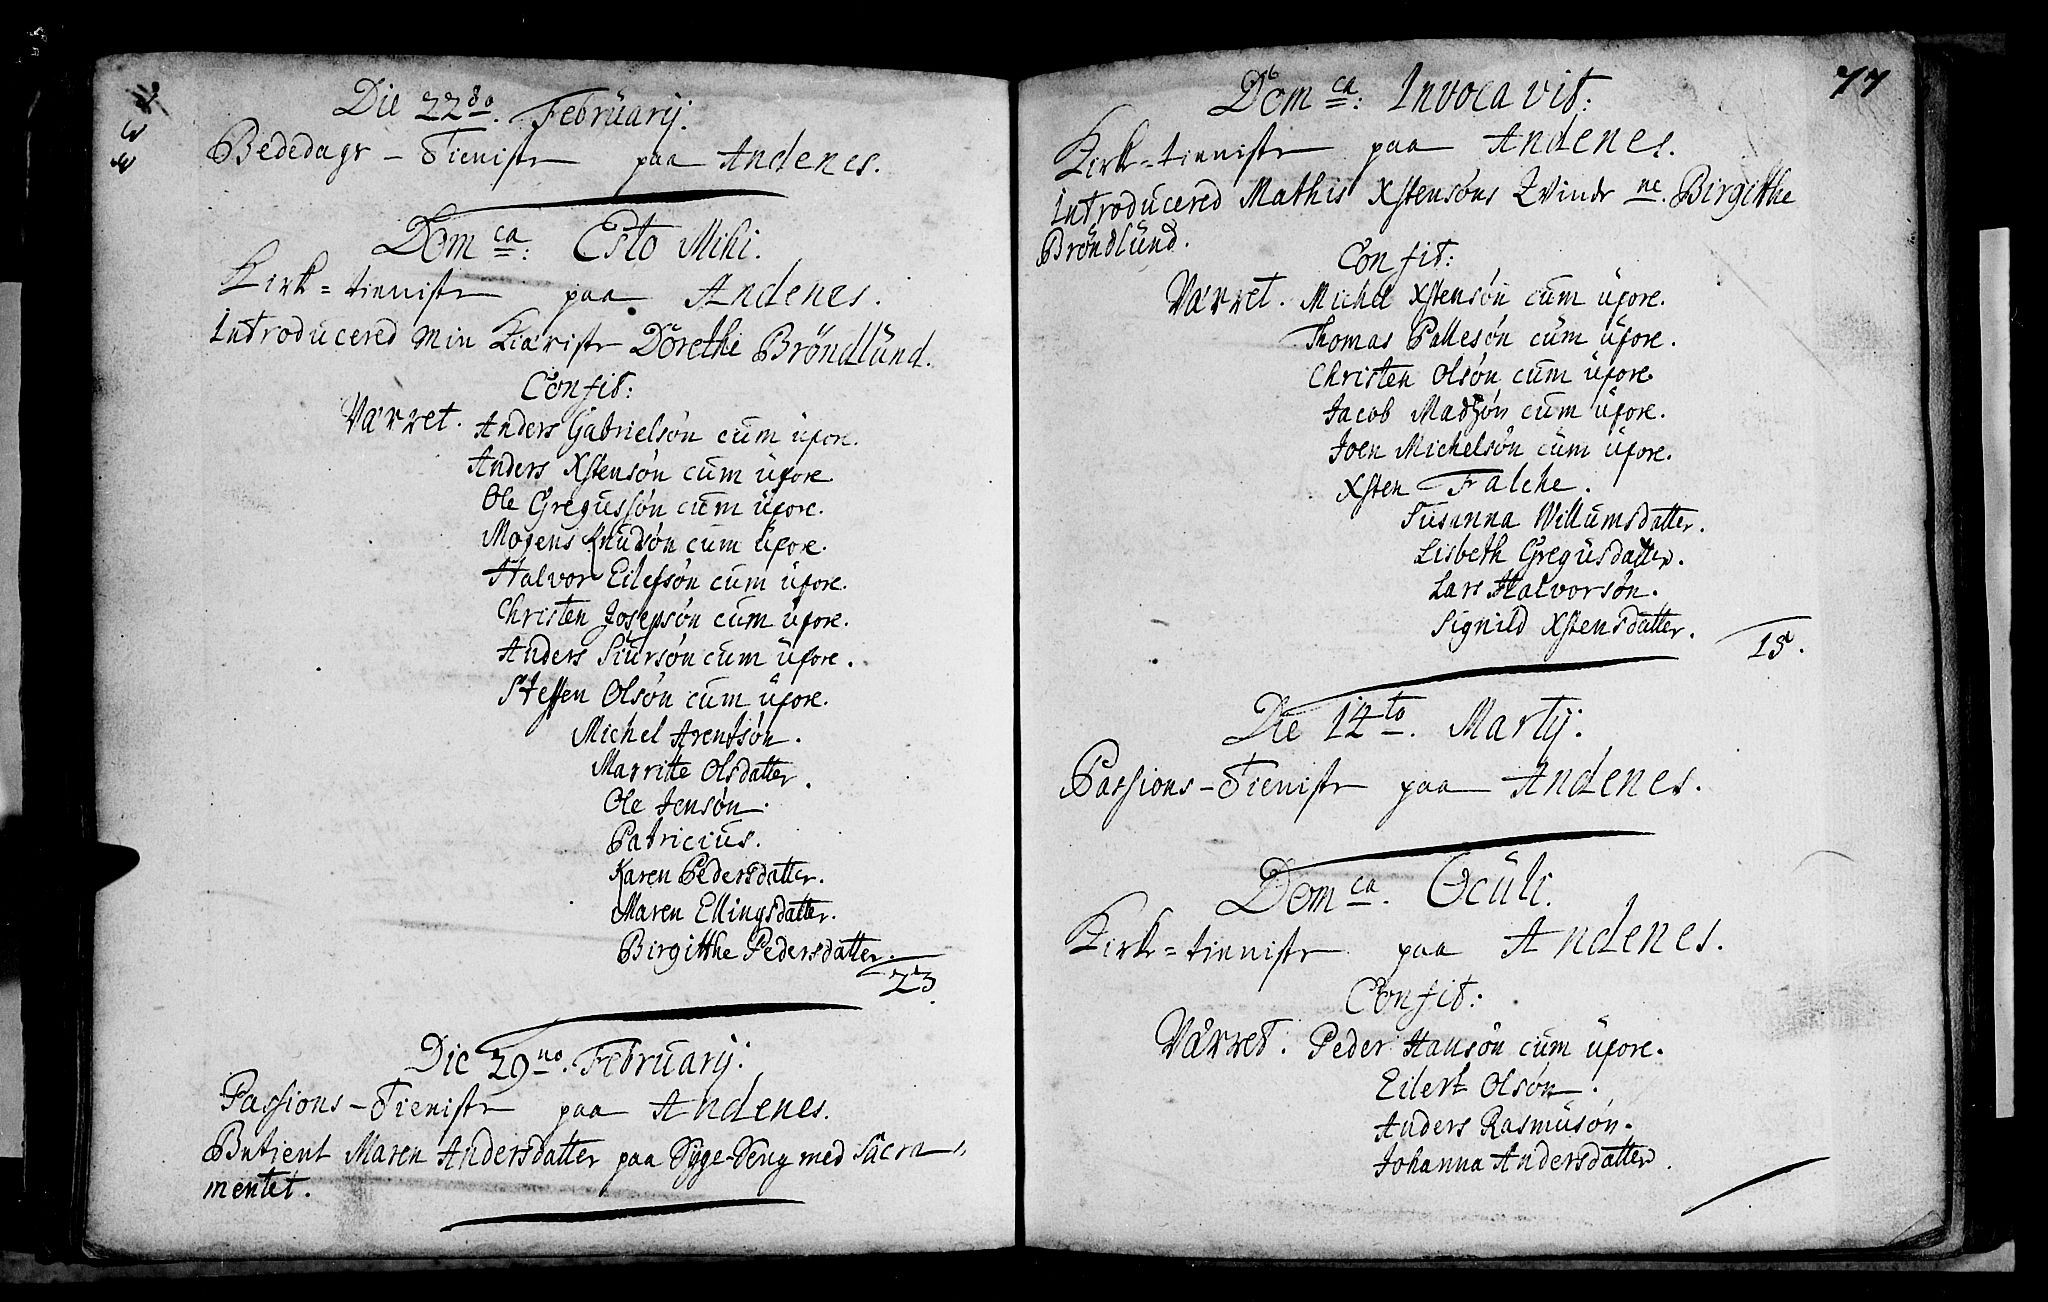 Die 22do. Februarij.
Bededags-Tieniste paa Andenes.
Domca: Esto Mihi.
Kirk=tieniste paa Andenes.
Introducered min Kiæriste Dorethe Bröndlünd.
Confit:
Værret. Anders Gabrielsön cum üxore.
Anders Xstensön cum üxore
Ole Gregussön cum üxore.
Mogens Knüdsön cum üxore.
Halvor Eilefsön cum üxore.
Christen Josepsön cum üxore.
Anders Siursön cum üxore.
Steffen Olsön cum üxore.
Michel Arentsön.
Marritte Olsdatter.
Ole Jensön.
Patricius.
Karen Pedersdatter.
Maren Ellingsdatter.
Birgitthe Pedersdatter.
23.
Die 29no. Februarij.
Passions-Tieniste paa Andenes.
Betient Maren Andersdatter paa Syge-Seng med Sacra=
mentet.
77
Domca: Invocavit:
Kirk=tieniste paa Andenes.
Introducered Mathis Xstensöns Qvinde ne. Birgitthe
Bröndlünd.
Confit:
Værret. Michel Xstensön cum üxore.
Thomas Pallesön cum üxore.
Christen Olsön cum üxore.
Jacob Madsön cum üxore.
Joen Michelsön cum üxore.
Xsten Falche.
Susanna Willumsdatter.
Lisbeth Gregüsdatter.
Lars Halvorsön.
Signild Xstensdatter.
15.
Die 14to. Martij:
Passions-Tieniste paa Andenes.
Domca. Ocüli.
Kirk=tieniste paa Andenes.
Confit:
Værret. Peder Hansön cum üxore.
Eilert Olsön.
Anders Rasmusön.
Johanna Andersdatter.